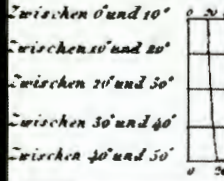 Zwischen 0° und 10° 0 20
Zwischen 10° und 20°
Zwischen 20° und 30°
Zwischen 30° und 40°
Zwischen 40° und 50°
0